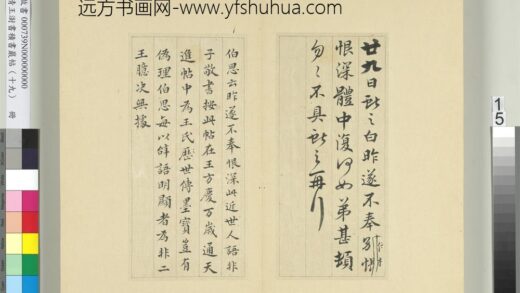 远方书画网-www.yfshuhua.com
廿九日獻之白昨遂不奉別悵
恨深體中復何如弟甚頓
勿〻不具獻之再行
伯思云昨遂不奉恨深此近世人語非
子敬書按此帖在王方慶万歲通天
進帖中为王氏歷世傳墨寶豈有
偽理伯思每以辞語明顯者为非二
王臆決無據
000739N000000000
王澍書積書巖帖（十九） 冊
15